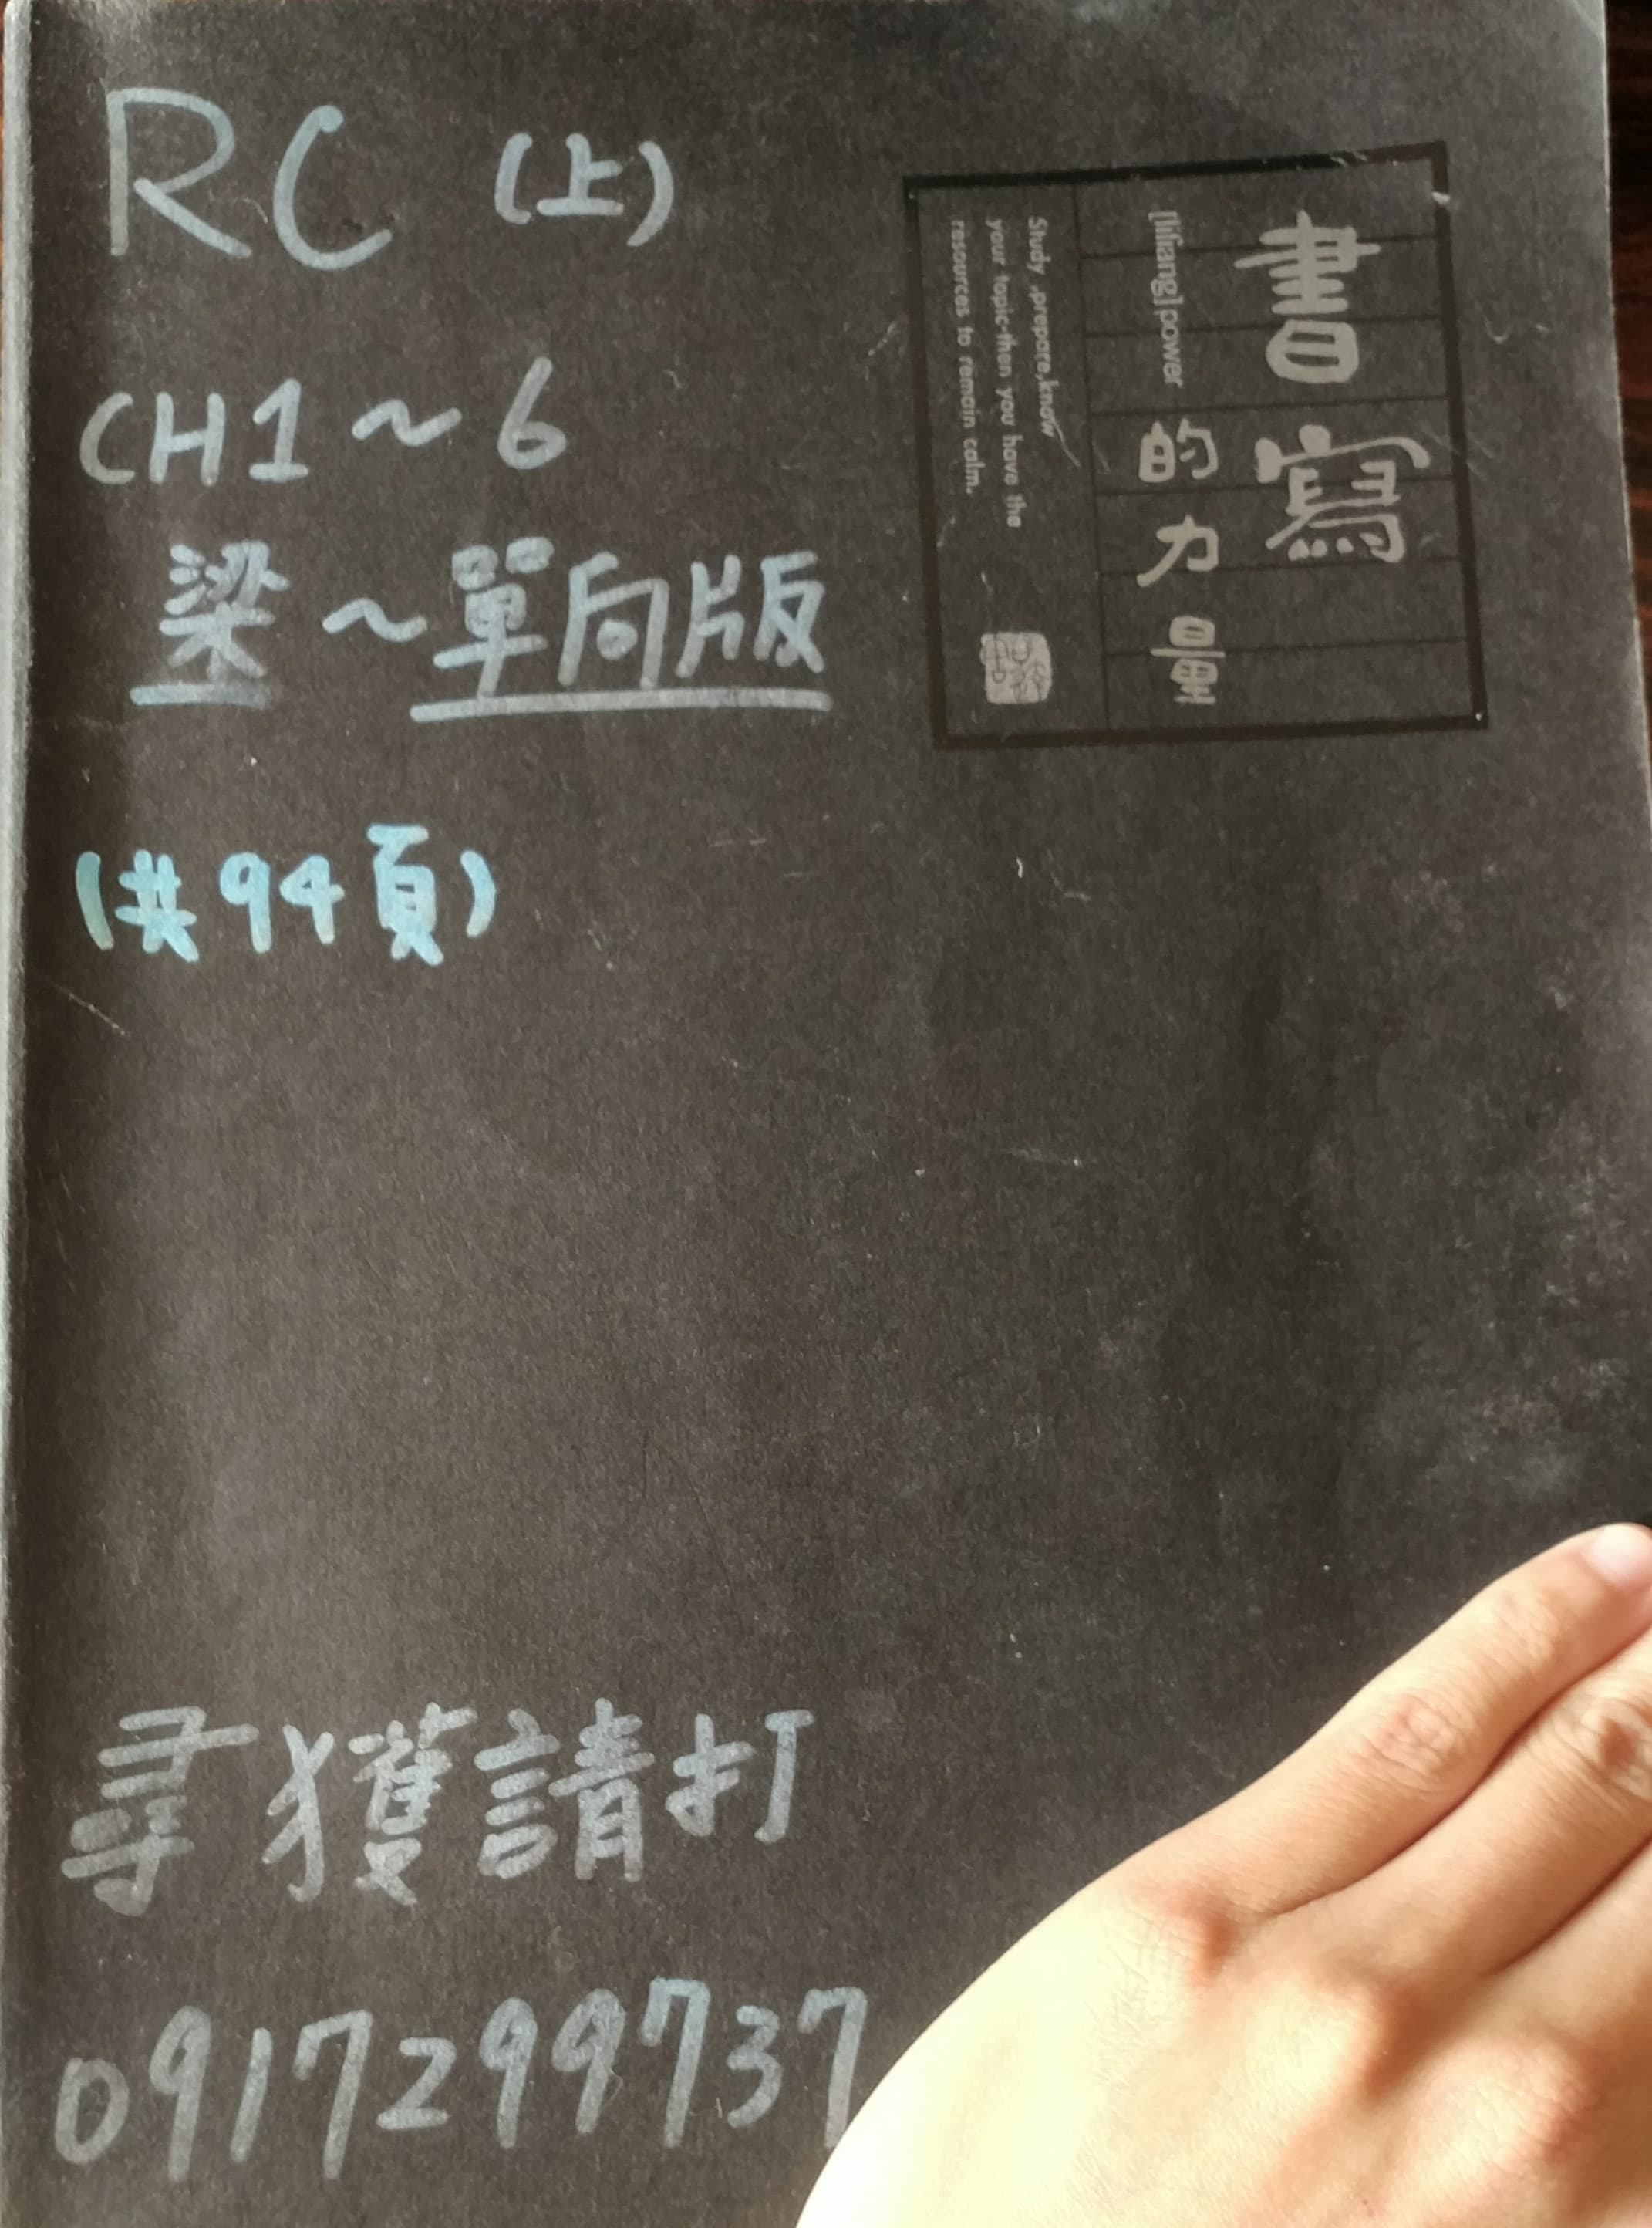 RC (上)
CH1～6
梁～單向版
(共94頁)
尋獲請打
0917299737
書寫
[liliang] power 的力量
Study ,prepare,know
your topic-then you have the
resources to remain calm.